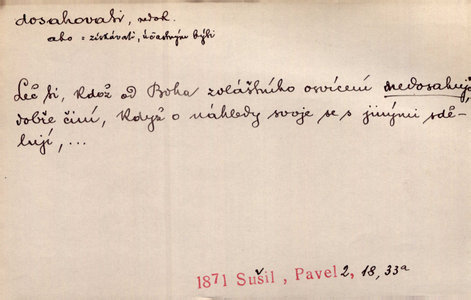 dosahovati, nedok.
ako = získávati, účastným býti
Leč ti, kdož od Boha zvláštního osvícení nedosahují,
dobře činí, když o náhledy svoje se s jinými sdě-
lují, ...
1871 Sušil, Pavel 2, 18, 33a